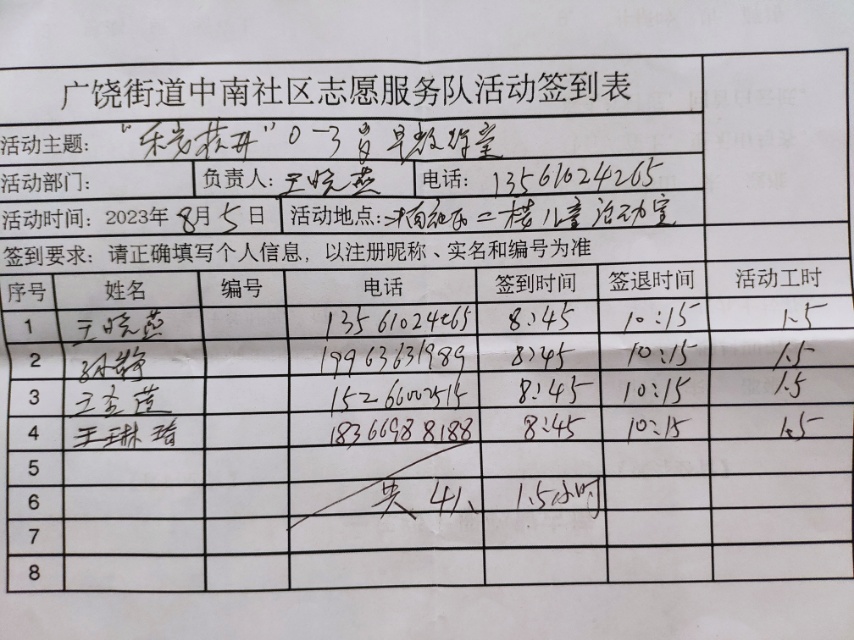 广饶街道中南社区志愿服务队活动签到表
活动主题: 0-3岁早教课堂
活动部门: 负责人: 王晓燕 电话: 13561024265
活动时间: 2023年8月5日 活动地点: 中南社区二楼儿童活动室
签到要求: 请正确填写个人信息，以注册昵称、实名和编号为准
序号 姓名 编号 电话 签到时间 签退时间 活动工时
1 王晓燕 13561024265 8:45 10:15 1.5
2 孙静 19963631989 8:45 10:15 1.5
3 8:45 10:15 1.5
4 王琳琦 18366988188 8:45 10:15 1.5
5
6 共4人 1.5小时
7
8